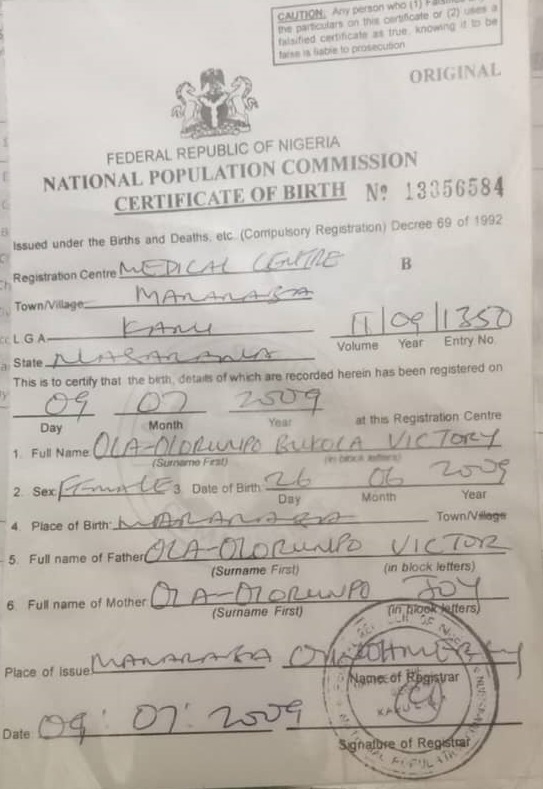 CAUTION: Any person who (1)
the particulars on this certificate or (2) uses a
falsified certificate as true, knowing it to be
false is liable to prosecution
ORIGINAL
FEDERAL REPUBLIC OF NIGERIA
NATIONAL POPULATION COMMISSION
CERTIFICATE OF BIRTH Nº 13356584
Issued under the Births and Deaths, etc. (Compulsory Registration) Decree 69 of 1992
Registration Centre MEDICAL CENTRE B
Town/Village MARARABA
L G A KARU 11/09/1350
Volume Year Entry No.
State NASARAWA
This is to certify that the birth, details of which are recorded herein has been registered on
09 07 2009
Day Month Year at this Registration Centre
1. Full Name OLA-OLORUNPO BUKOLA VICTORY
(Surname First) (in block letters)
2. Sex FEMALE 3. Date of Birth 26 06 2009
Day Month Year
4. Place of Birth MARARABA Town/Village
5. Full name of Father OLA-OLORUNPO VICTOR
(Surname First) (in block letters)
6. Full name of Mother OLA-OLORUNPO JOY
(Surname First) (in block letters)
Place of issue MARARABA
Name of Registrar
Date 09: 07: 2009
Signature of Registrar